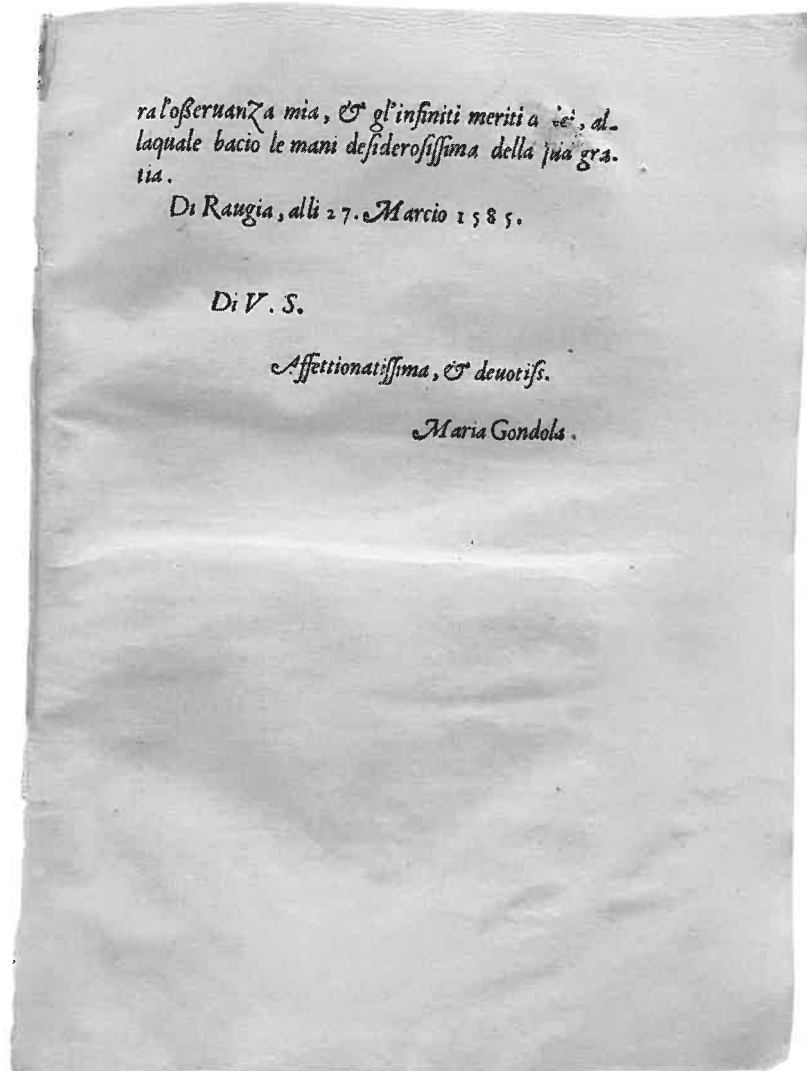 ral'oßeruanza mia, & gl'infiniti meriti a , al-
laquale bacio le mani desiderosissima della sua gra-
tia.
Di Raugia, alli 27. Marcio 1585.
Di V. S.
Affettionatissima, & deuotiss.
Maria Gondola.